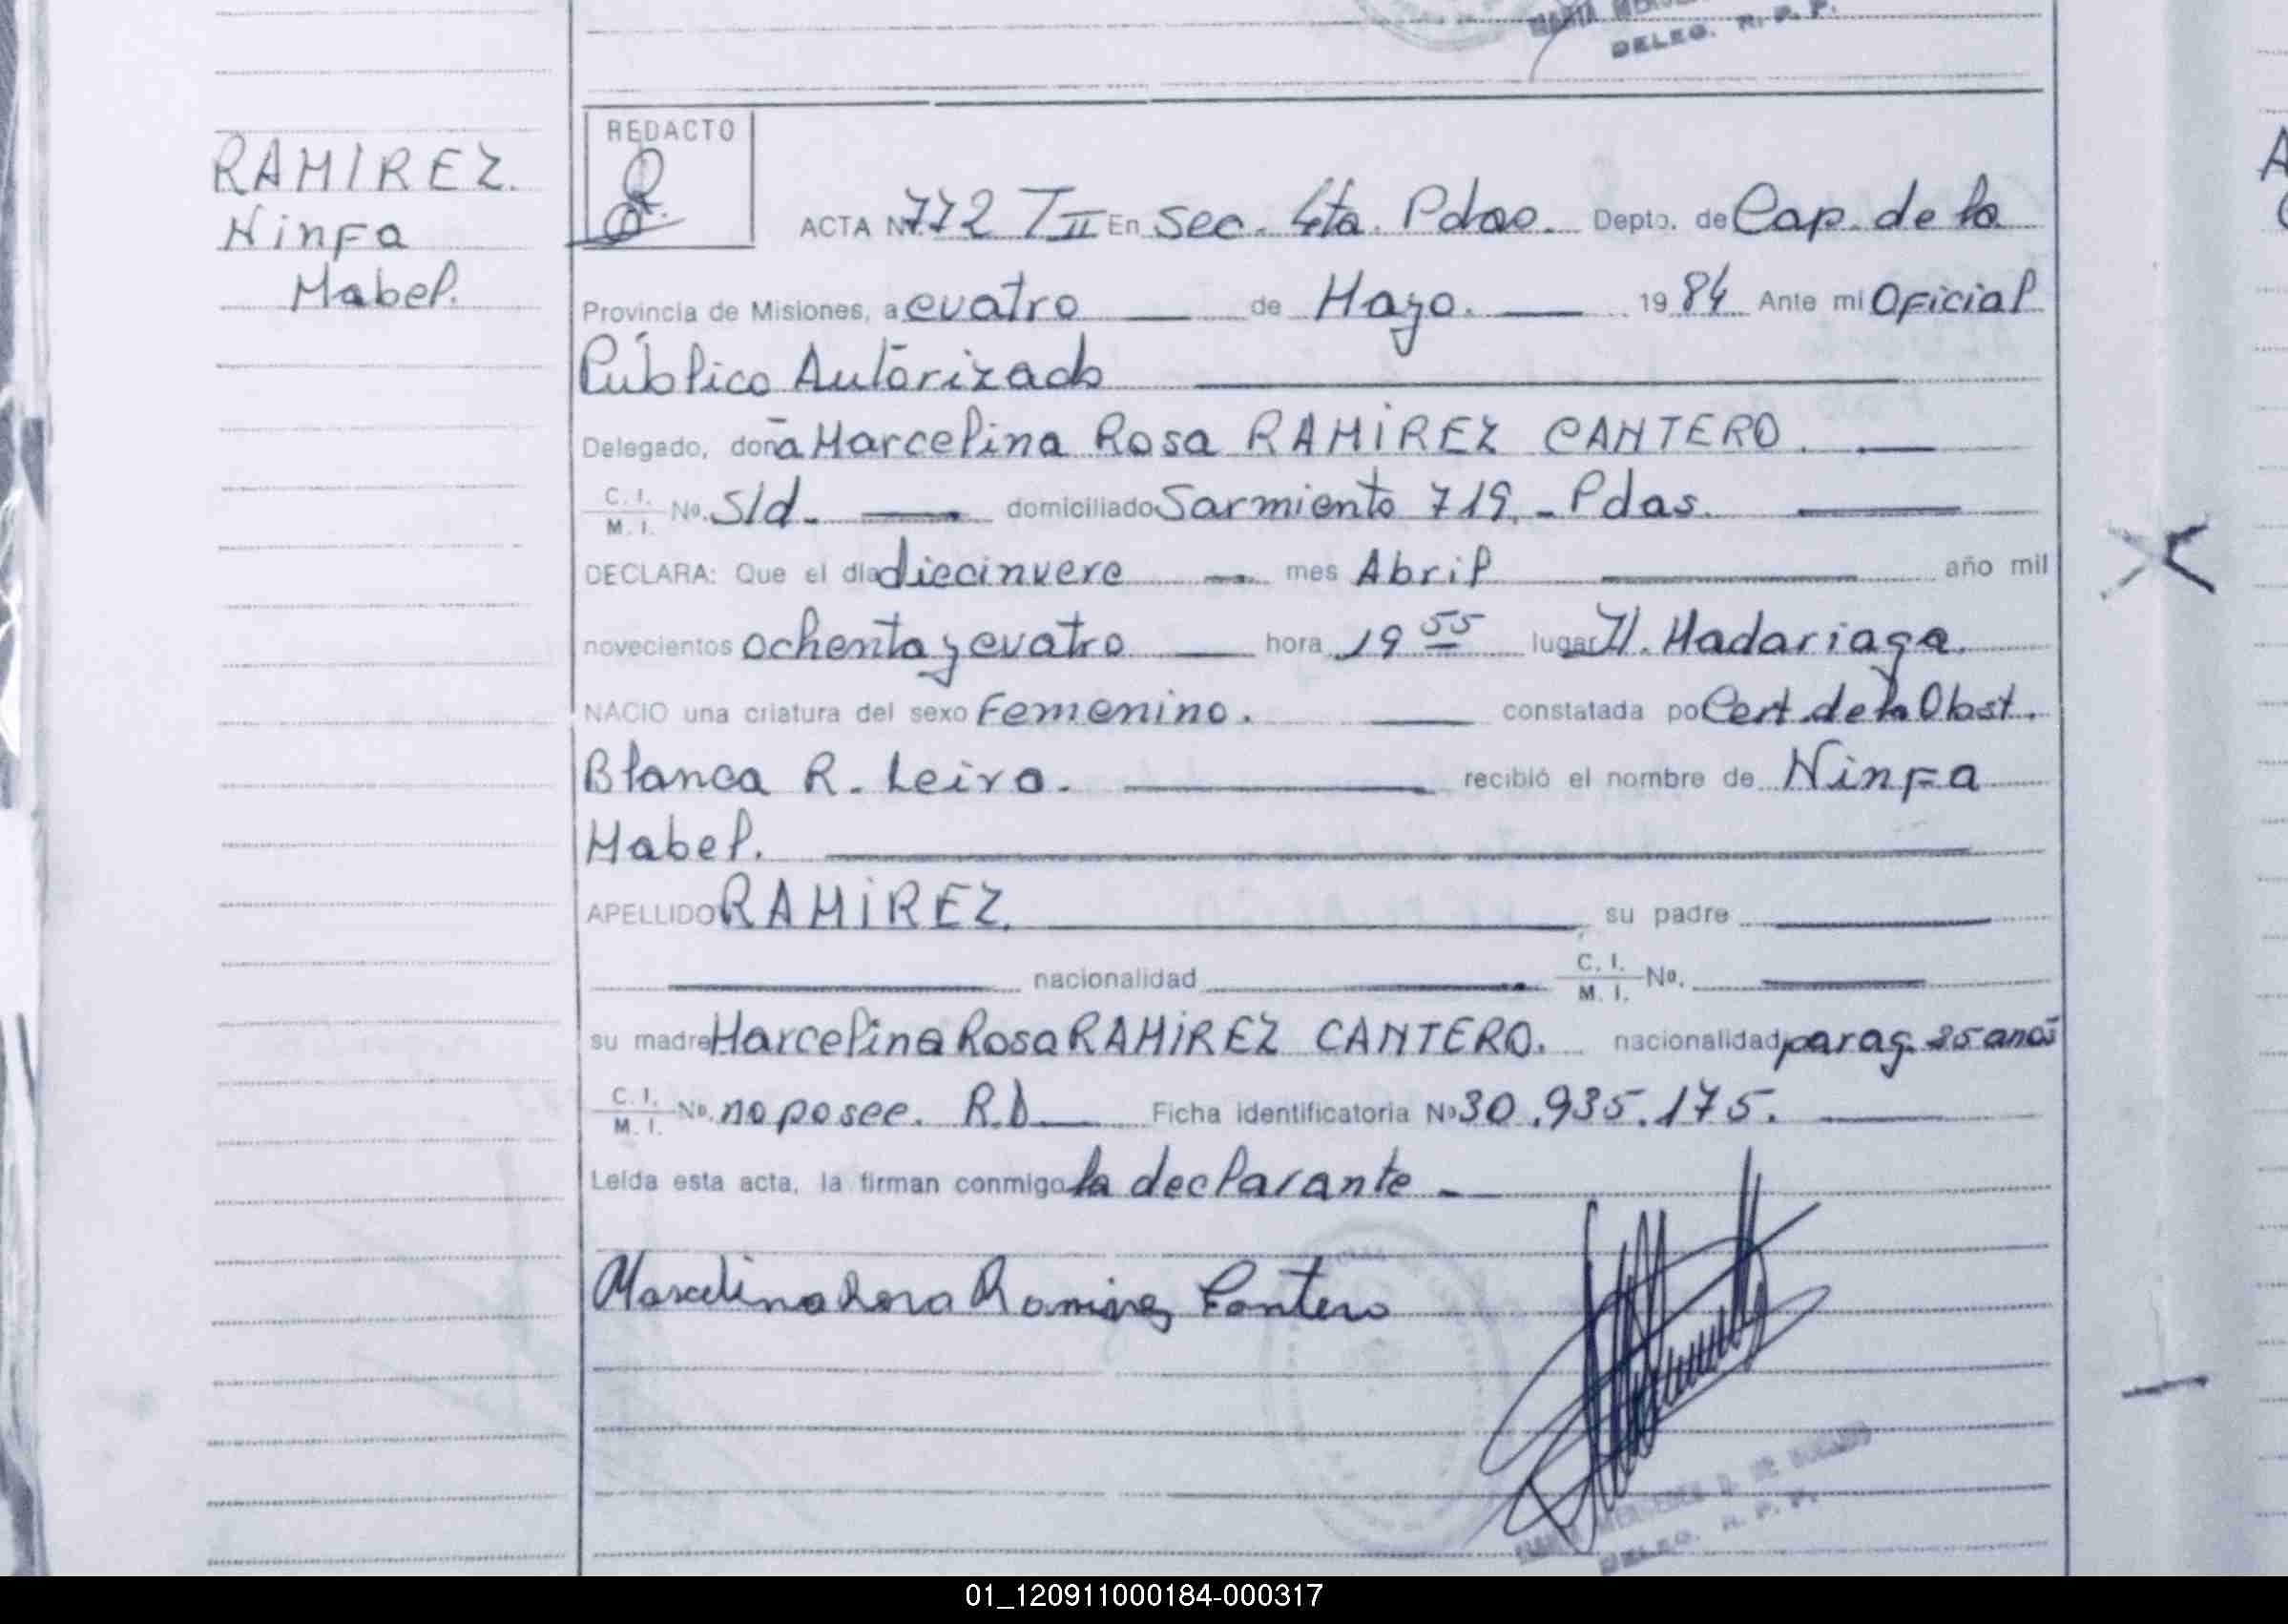 DELEG. R. P. P.
REDACTO
RAMIREZ.
Ninfa
Mabel.
ACTA Nº 772 T II En Sec. 4ta. Pdas. Depto. de Cap. de la
Provincia de Misiones, a cuatro de Mayo. 1984 Ante mi Oficial
Público Autorizado
Delegado, doña Marcelina Rosa RAMIREZ CANTERO.
C. I. / M. I. No. S/d. domiciliado Sarmiento 719.- Pdas.
DECLARA: Que el día diecinueve mes Abril año mil
novecientos ochenta y cuatro hora 19 55 lugar H. Madariaga.
NACIO una criatura del sexo Femenino. constatada po Cert. de la Obst.
Blanca R. Leiva. recibió el nombre de Ninfa
Mabel.
APELLIDO RAMIREZ. su padre
nacionalidad C. I. / M. I. No.
su madre Marcelina Rosa RAMIREZ CANTERO. nacionalidad parag. 25 años
C. I. / M. I. No. no posee. R.D Ficha identificatoria No 30.935.175.
Leída esta acta, la firman conmigo la declarante
Marcelina Rosa Ramirez Cantero
DELEG. R. P. P.
01_120911000184-000317